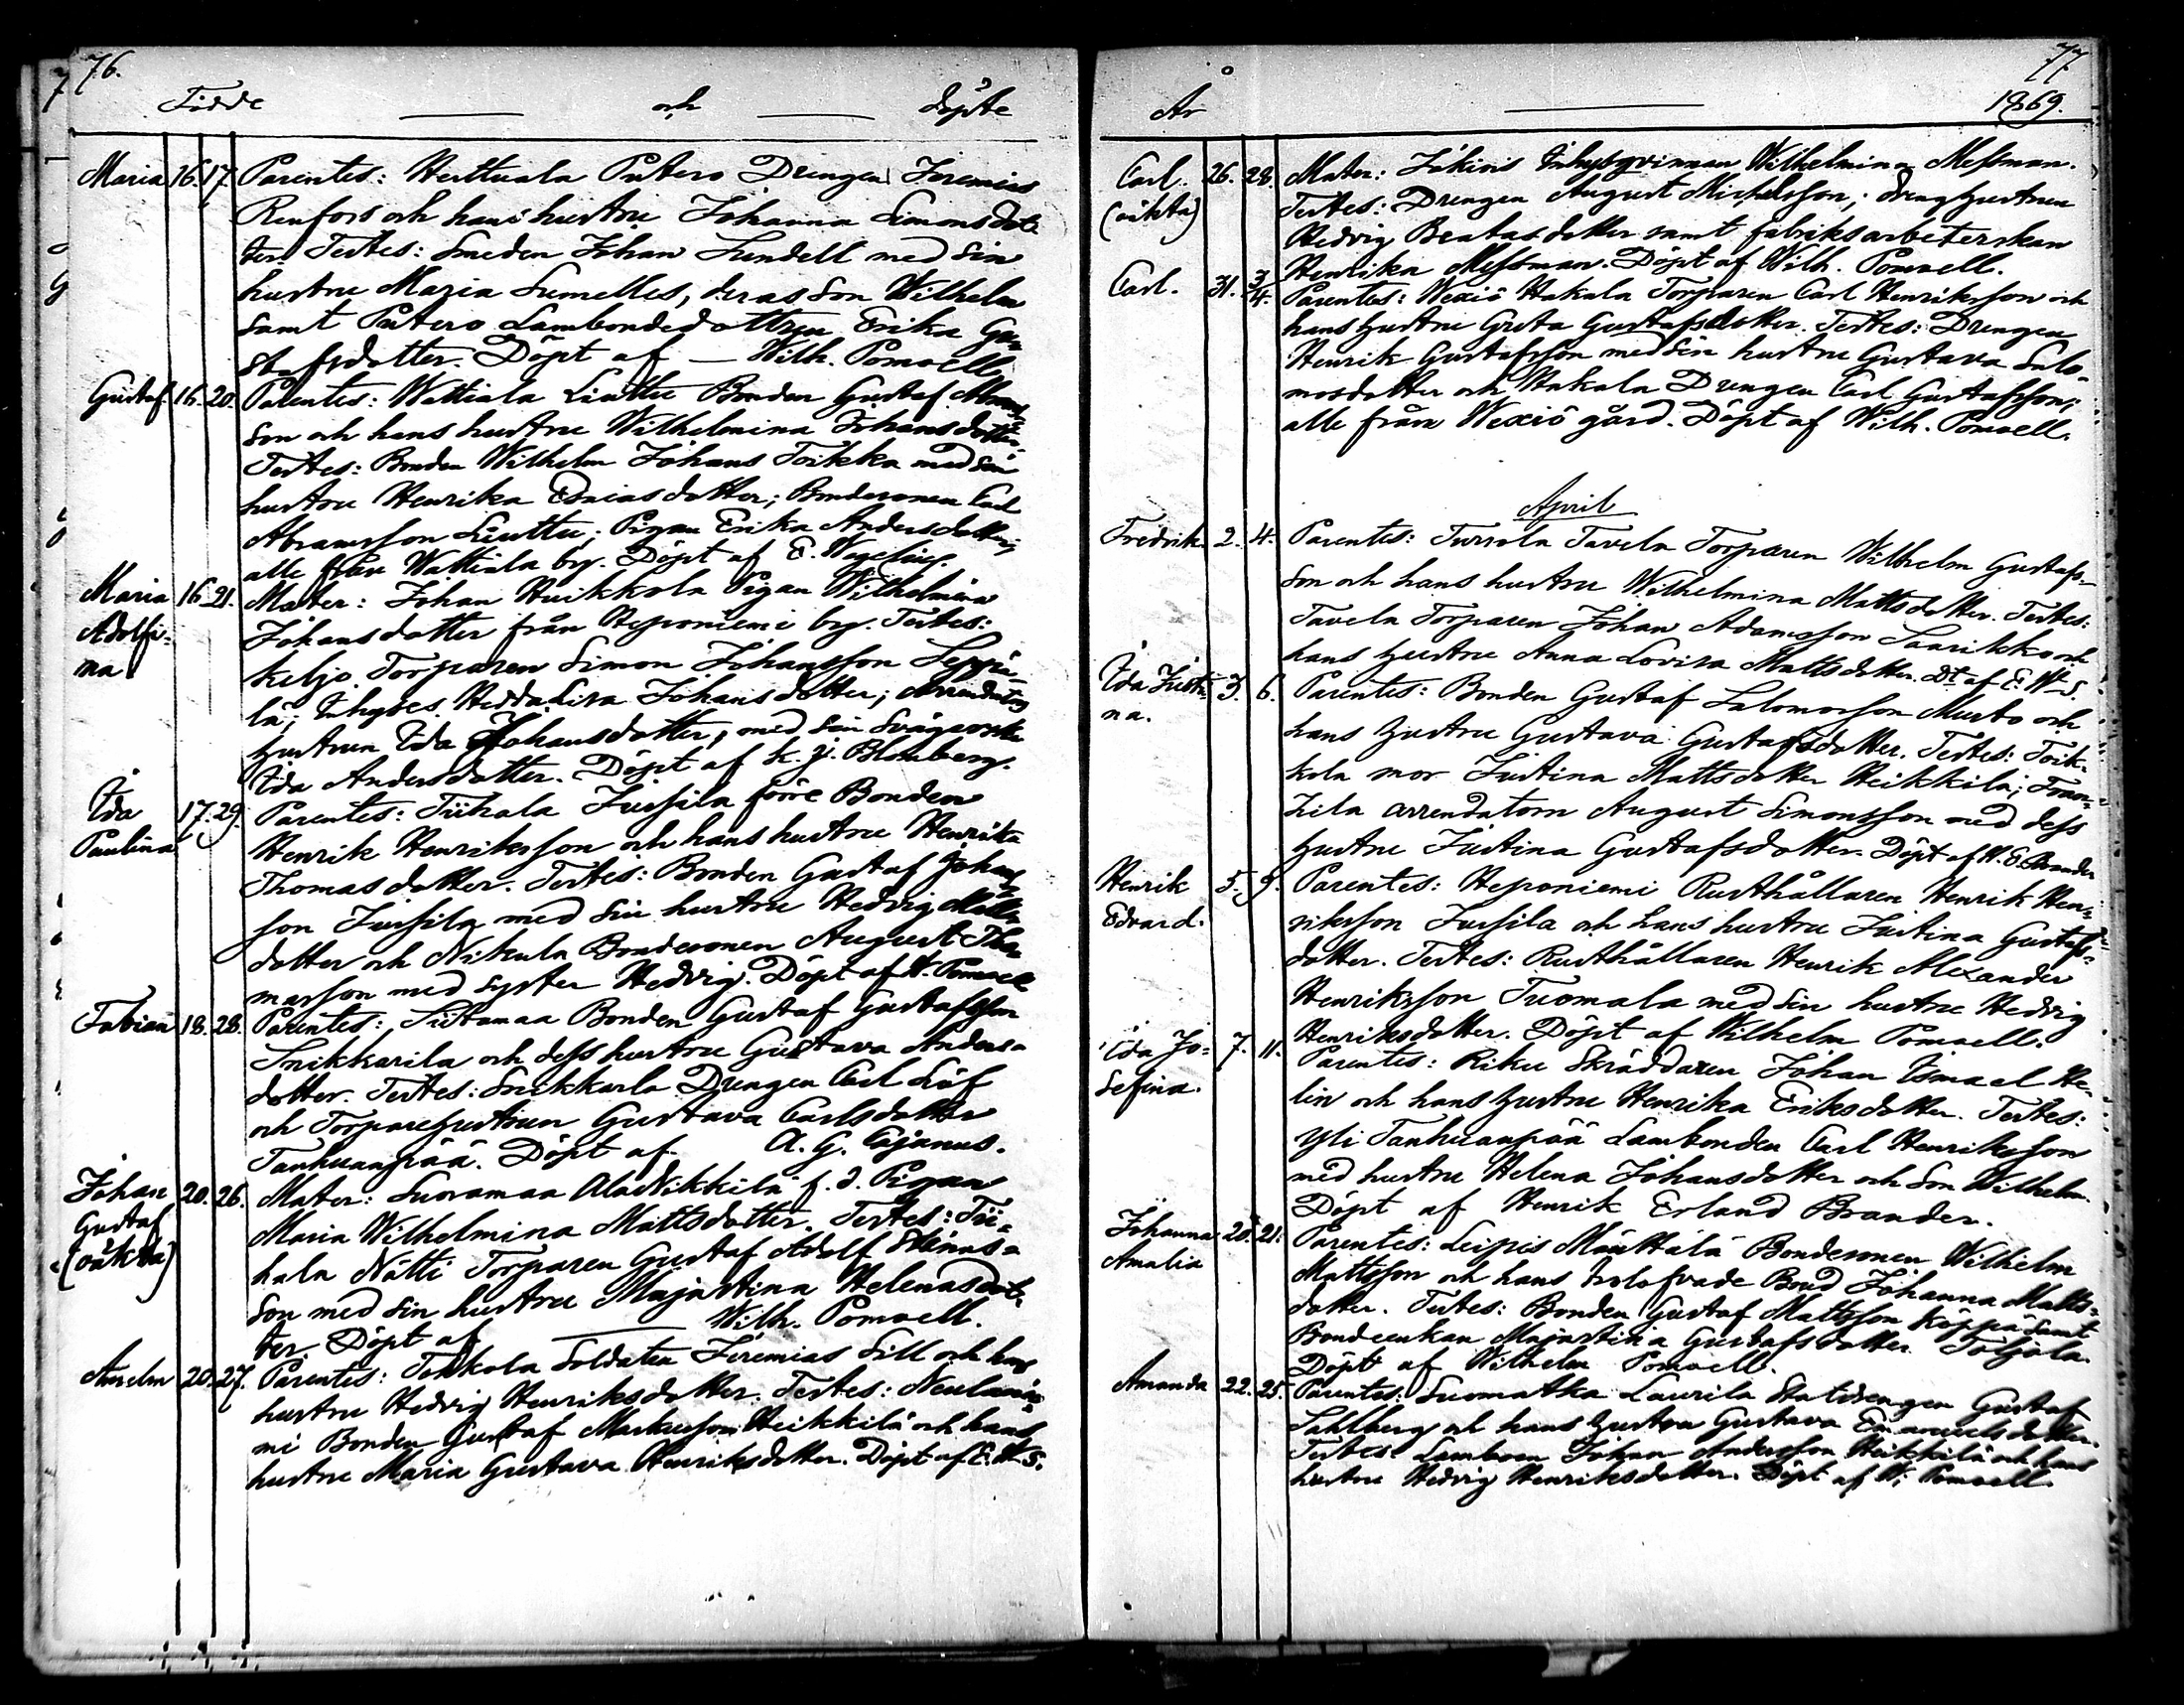 76.
Födde och döpte
Maria 16. 17. Parentes: Herttuala Putero Drengen Jeremias
Renfors och hans hustru Johanna Simonsdot-
ter. Testes: Smeden Johan Lundell med sin
hustru Maria Sumelles, deras son Wilhelm
samt Putero Lambondedottren Erika Gu-
stafsdotter. Döpt af — Wilh. Pomoell.
Gustaf. 16. 20. Parentes: Wattiala Liuttu Bonden Gustaf
son och hans hustru Wilhelmina Johansdotter.
Testes: Bonden Wilhelm Johans Toikka med sin
hustru Henrika Esaiasdotter; Bondesonen Carl
Abramsson Liuttu; Pigan Erika Andersdotter;
alle från Wattiala by. Döpt af E.
Maria 16. 21. Mater: Johan Huikkola Pigan Wilhelmina
Adolfi- Johansdotter från Heponiemi by. Testes:
na Torparen Simon Johansson Seppä-
lä; Inhyses Hedda Lisa Johansdotter; Arrendators
hustrun Ida Johansdotter, med sin svägerska
Ida Andersdotter. Döpt af K. J. Blomberg.
Ida 17. 29. Parentes: Tiihala Jussila förre Bonden
Paulina Henrik Henriksson och hans hustru Henrika
Thomasdotter. Testes: Bonden Gustaf Johans-
son Jussila med sin hustru Hedvig
dotter och Nikula Bondesonen August Tho-
masson med syster Hedvig. Döpt af W. Pomoell
Fabian 18. 28. Parentes: Siitamaa Bonden Gustaf Gustafsson
Snikkarila och dess hustru Gustava Anders-
dotter. Testes: Snikkarla Drengen Carl Löf
och Torparehustrun Gustava Carlsdotter
Tanhuanpää. Döpt af A. G. Cajanus.
Johan 20. 26. Mater: Suoramaa Ala Nikkilä f. d. Pigan
Gustaf Maria Wilhelmina Mattsdotter. Testes: Tii-
(oäkta) hala Nätti Torparen Gustaf Adolf
son med sin hustru Majastina Helenasdot-
ter. Döpt af — Wilh. Pomoell.
Anselm 20. 27. Parentes: Tokkola Soldaten Jeremias Sill och hans
hustru Hedvig Henriksdotter. Testes:
mi Bonden Gustaf Markusson Heikkilä och hans
hustru Maria Gustava Henriksdotter. Döpt af E. W. S.
77
År 1869.
Carl. 26. 28. Mater: Jokinis Inhysqvinnan Wilhelmina Messman.
(oäkta) Testes: Drengen August Michelsson; drenghustrun
Hedvig Beatasdotter samt fabriksarbeterskan
Henrika Messman. Döpt af Wilh. Pomoell.
Carl. 31. 3/4. Parentes: Wexiö Hakala Torparen Carl Henriksson och
hans hustru Greta Gustafsdotter. Testes: Drengen
Henrik Gustafsson med sin hustru Gustava Salo-
mosdotter och Hakala Drengen Carl Gustafsson;
alle från Wexiö gård. Döpt af Wilh. Pomoell.
April
Fredrik. 2. 4. Parentes: Turrola Tavela Torparen Wilhelm Gustafs-
son och hans hustru Wilhelmina Mattsdotter. Testes:
Tavela Torparen Johan Adamsson Saarikko och
hans hustru Anna Lovisa Mattsdotter. Dt af E. W. S.
Ida Justi- 3. 6. Parentes: Bonden Gustaf Salomosson Musto och
na. hans hustru Gustava Gustafsdotter. Testes: Toik-
kola mor Justina Mattsdotter Heikkilä; Fran-
zila arrendatorn August Simonsson med dess
hustru Justina Gustafsdotter. Döpt af H. E. Brander
Henrik 5. 9. Parentes: Heponiemi Rusthållaren Henrik Hen-
Edvard. riksson Jussila och hans hustru Justina Gustafs-
dotter. Testes: Rusthållaren Henrik Alexander
Henriksson Tuomala med sin hustru Hedvig
Henriksdotter. Döpt af Wilhelm Pomoell.
Ida Jo- 7. 11. Parentes: Riku Skräddaren Johan Ismael He-
sefina. lin och hans hustru Henrika Eriksdotter. Testes:
Yli Tanhuanpää Lambonden Carl Henriksson
med hustru Helena Johansdotter och son Wilhelm.
Döpt af Henrik Erland Brander.
Johanna 20. 21. Parentes: Leipis Mäuttälä Bondesonen Wilhelm
Amalia Mattsson och hans trolofvade Brud Johanna Matts-
dotter. Testes: Bonden Gustaf Mattsson Köppä samt
Bondeenkan Majastina Gustafsdotter
Döpt af Wilhelm Pomoell.
Amanda 22. 25. Parentes: Suomatka Laurila Statdrengen Gustaf
Sahlberg och hans hustru Gustava Emanuelsdotter.
Testes: Lambon Johan Andersson Heikkilä och hans
hustru Hedvig Henriksdotter. Döpt af W. Pomoell.